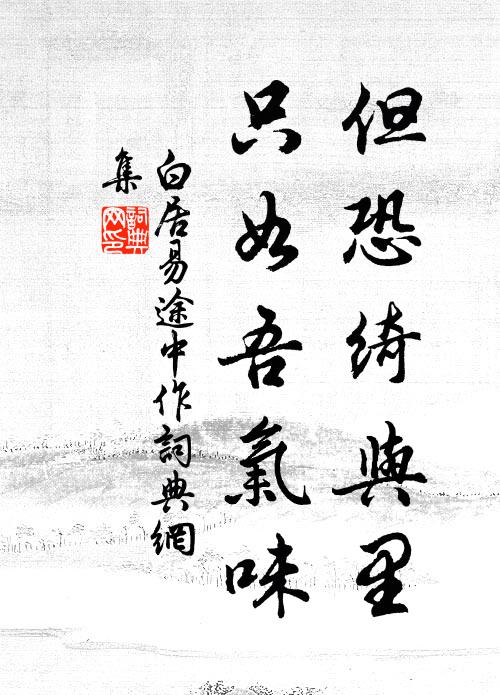 但恐綺與里
只如吾氣味
白居易途中作詞典網
集
詞典
网印